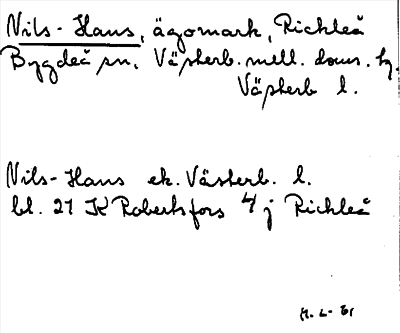 Nils-Hans, ägomark, Rickleå
Bygdeå sn. Västerb. mell. doms. hg.
Västerb l.
Nils-Hans ek. Västerb. l.
bl. 21 K Robertsfors 4 j Rickleå